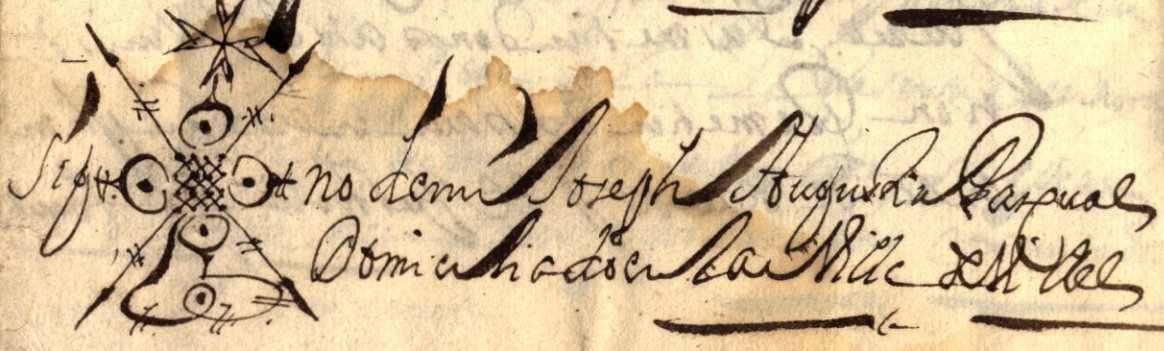 Sig no de mi Joseph Augustin Pasqual
Domiciliado en la Villa de